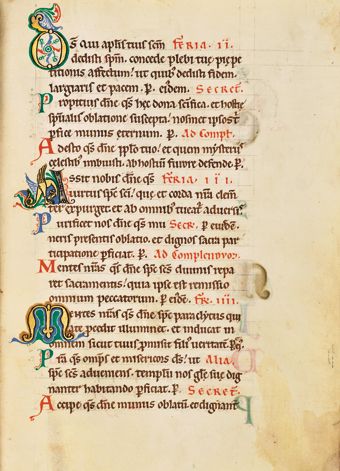 DS qui aplis tuis scm FERIA· II·
dedisti spm. concede plebi tue pie pe
titionis affectum. ut quib; dedisti fidem.
largiaris et pacem. P. eidem. SECRET.
Propitius dne qs hec dona scifica. et hostie
spitalis oblatione suscepta. nosmet ipsos t
pfice munus eternum. P. AD COMPL.
Adesto qs dne pplo tuo. et quem mysteriis
celestib; imbuisti. ab hostiu furore defende. P.
Assit nobis dne qs FERIA· III·
uirtus sps sci. que et corda nra clem
ter expurget. et ab omnib; tueat aduersis.
Purificet nos dne qs mu SECR. P. eiusde.
neris presentis oblatio. et dignos sacra par
ticipatione pficiat. P. AD COMPLENDVM.
Mentes nras qs dne sps scs diuinis repa
ret sacramentis. quia ipse est remissio
omnium peccatorum. P. eide. FR. IIII.
Mentes nras qs dne sps paraclytus qui
a te pcedit illuminet. et inducat in
omnem sicut tuus pmisit filius ueritate. P.
Pra qs omps et misericors ds. ut ALIA.
sps scs adueniens. templu nos gle sue dig
nanter habitando pficiat. P. SECRET.
Accipe qs dne munus oblatu. et dignant